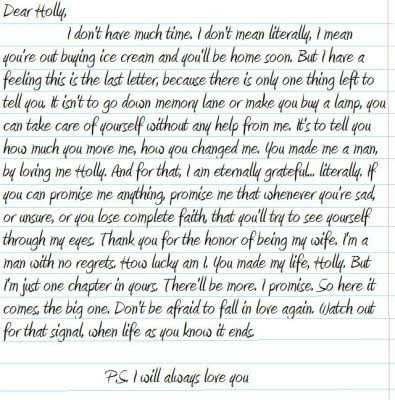 Dear Holly,
I don't have much time. I don't mean literally, I mean
you're out buying ice cream and you'll be home soon. But I have a
feeling this is the last letter, because there is only one thing left to
tell you. It isn't to go down memory lane or make you buy a lamp, you
can take care of yourself without any help from me. It's to tell you
how much you move me, how you changed me. You made me a man,
by loving me Holly. And for that, I am eternally grateful... literally. If
you can promise me anything, promise me that whenever you're sad,
or unsure, or you lose complete faith, that you'll try to see yourself
through my eyes. Thank you for the honor of being my wife. I'm a
man with no regrets. How lucky am I. You made my life, Holly. But
I'm just one chapter in yours. There'll be more. I promise. So here it
comes, the big one. Don't be afraid to fall in love again. Watch out
for that signal, when life as you know it ends.
P.S. I will always love you